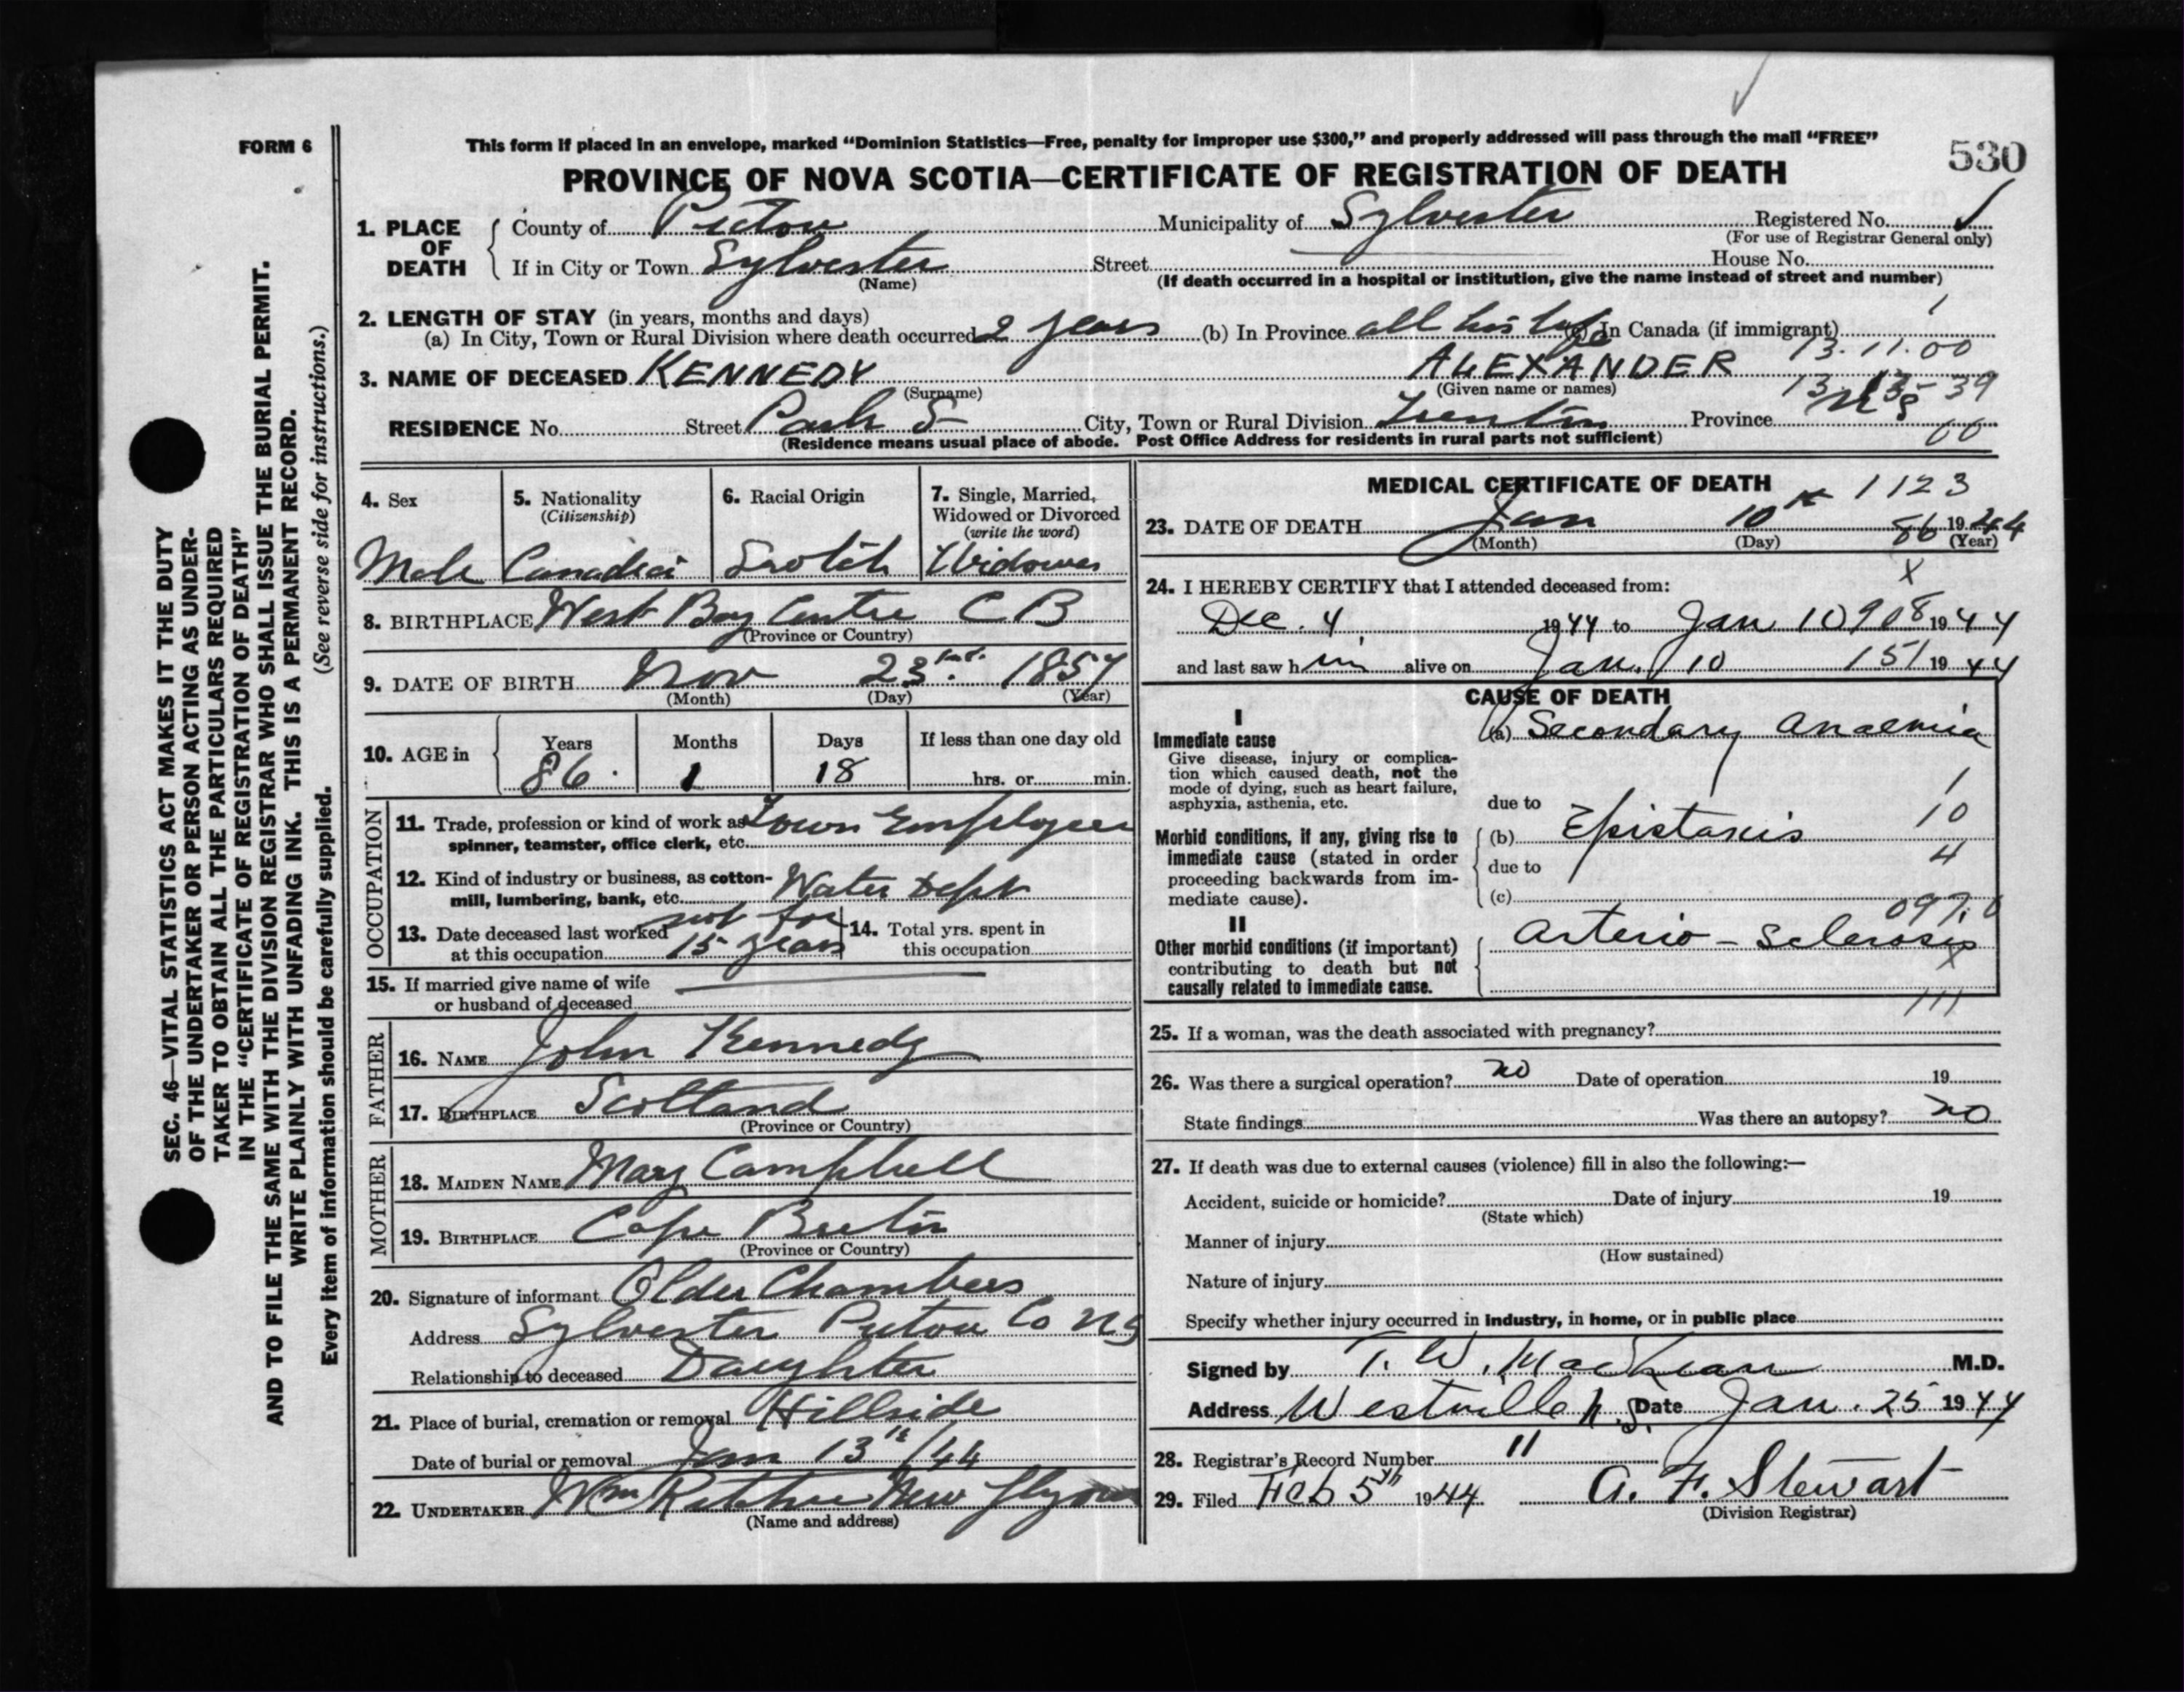 FORM 6
This form if placed in an envelope, marked “Dominion Statistics—Free, penalty for improper use $300,” and properly addressed will pass through the mail “FREE”
530
PROVINCE OF NOVA SCOTIA—CERTIFICATE OF REGISTRATION OF DEATH
SEC. 46—VITAL STATISTICS ACT MAKES IT THE DUTY
OF THE UNDERTAKER OR PERSON ACTING AS UNDER-
TAKER TO OBTAIN ALL THE PARTICULARS REQUIRED
IN THE “CERTIFICATE OF REGISTRATION OF DEATH”
AND TO FILE THE SAME WITH THE DIVISION REGISTRAR WHO SHALL ISSUE THE BURIAL PERMIT.
WRITE PLAINLY WITH UNFADING INK. THIS IS A PERMANENT RECORD.
Every item of information should be carefully supplied. (See reverse side for instructions.)
1. PLACE OF DEATH
County of Pictou Municipality of Sylvester Registered No.
(For use of Registrar General only)
If in City or Town Sylvester Street House No.
(Name) (If death occurred in a hospital or institution, give the name instead of street and number)
2. LENGTH OF STAY (in years, months and days)
(a) In City, Town or Rural Division where death occurred 2 years (b) In Province all his life (c) In Canada (if immigrant)
13.11.00
3. NAME OF DECEASED KENNEDY ALEXANDER
(Surname) (Given name or names)
13 13-39
RESIDENCE No. Street Park S City, Town or Rural Division Trenton Province N S
(Residence means usual place of abode. Post Office Address for residents in rural parts not sufficient)
00
4. Sex
5. Nationality
(Citizenship)
6. Racial Origin
7. Single, Married,
Widowed or Divorced
(write the word)
Male Canadian Scotch Widower
8. BIRTHPLACE West Bay Centre C B
(Province or Country)
9. DATE OF BIRTH Nov 23 1857
(Month) (Day) (Year)
10. AGE in Years Months Days If less than one day old
86 1 18 hrs. or min.
OCCUPATION
11. Trade, profession or kind of work as Town Employee
spinner, teamster, office clerk, etc.
12. Kind of industry or business, as cotton- Water Dept
mill, lumbering, bank, etc.
13. Date deceased last worked not for
at this occupation 15 years
14. Total yrs. spent in
this occupation
15. If married give name of wife
or husband of deceased
FATHER
16. NAME John Kennedy
17. BIRTHPLACE Scotland
(Province or Country)
MOTHER
18. MAIDEN NAME Mary Campbell
19. BIRTHPLACE Cape Breton
(Province or Country)
20. Signature of informant Chambers
Address Sylvester Pictou Co N S
Relationship to deceased Daughter
21. Place of burial, cremation or removal Hillside
Date of burial or removal Jan 13th/44
22. UNDERTAKER Wm Ritchie New
(Name and address)
MEDICAL CERTIFICATE OF DEATH
1123
23. DATE OF DEATH Jan 10th 86 1944
(Month) (Day) (Year)
X
24. I HEREBY CERTIFY that I attended deceased from:
Dec. 4, 1944 to Jan 10 908 1944
and last saw him alive on Jan. 10 151 1944
CAUSE OF DEATH
I
Immediate cause
Give disease, injury or complica-
tion which caused death, not the
mode of dying, such as heart failure,
asphyxia, asthenia, etc.
(a) Secondary Anaemia
1
due to
Morbid conditions, if any, giving rise to
immediate cause (stated in order
proceeding backwards from im-
mediate cause).
(b) Epistaxis 10
due to 4
(c) 097.0
II
Other morbid conditions (if important)
contributing to death but not
causally related to immediate cause.
Arterio-Sclerosis
X
111
25. If a woman, was the death associated with pregnancy?
26. Was there a surgical operation? no Date of operation 19
State findings Was there an autopsy? no
27. If death was due to external causes (violence) fill in also the following:—
Accident, suicide or homicide? Date of injury 19
(State which)
Manner of injury
(How sustained)
Nature of injury
Specify whether injury occurred in industry, in home, or in public place
Signed by T. W. MacLean M.D.
Address Westville N.S. Date Jan. 25 1944
28. Registrar's Record Number 11
29. Filed Feb 5th 1944 A. F. Stewart
(Division Registrar)